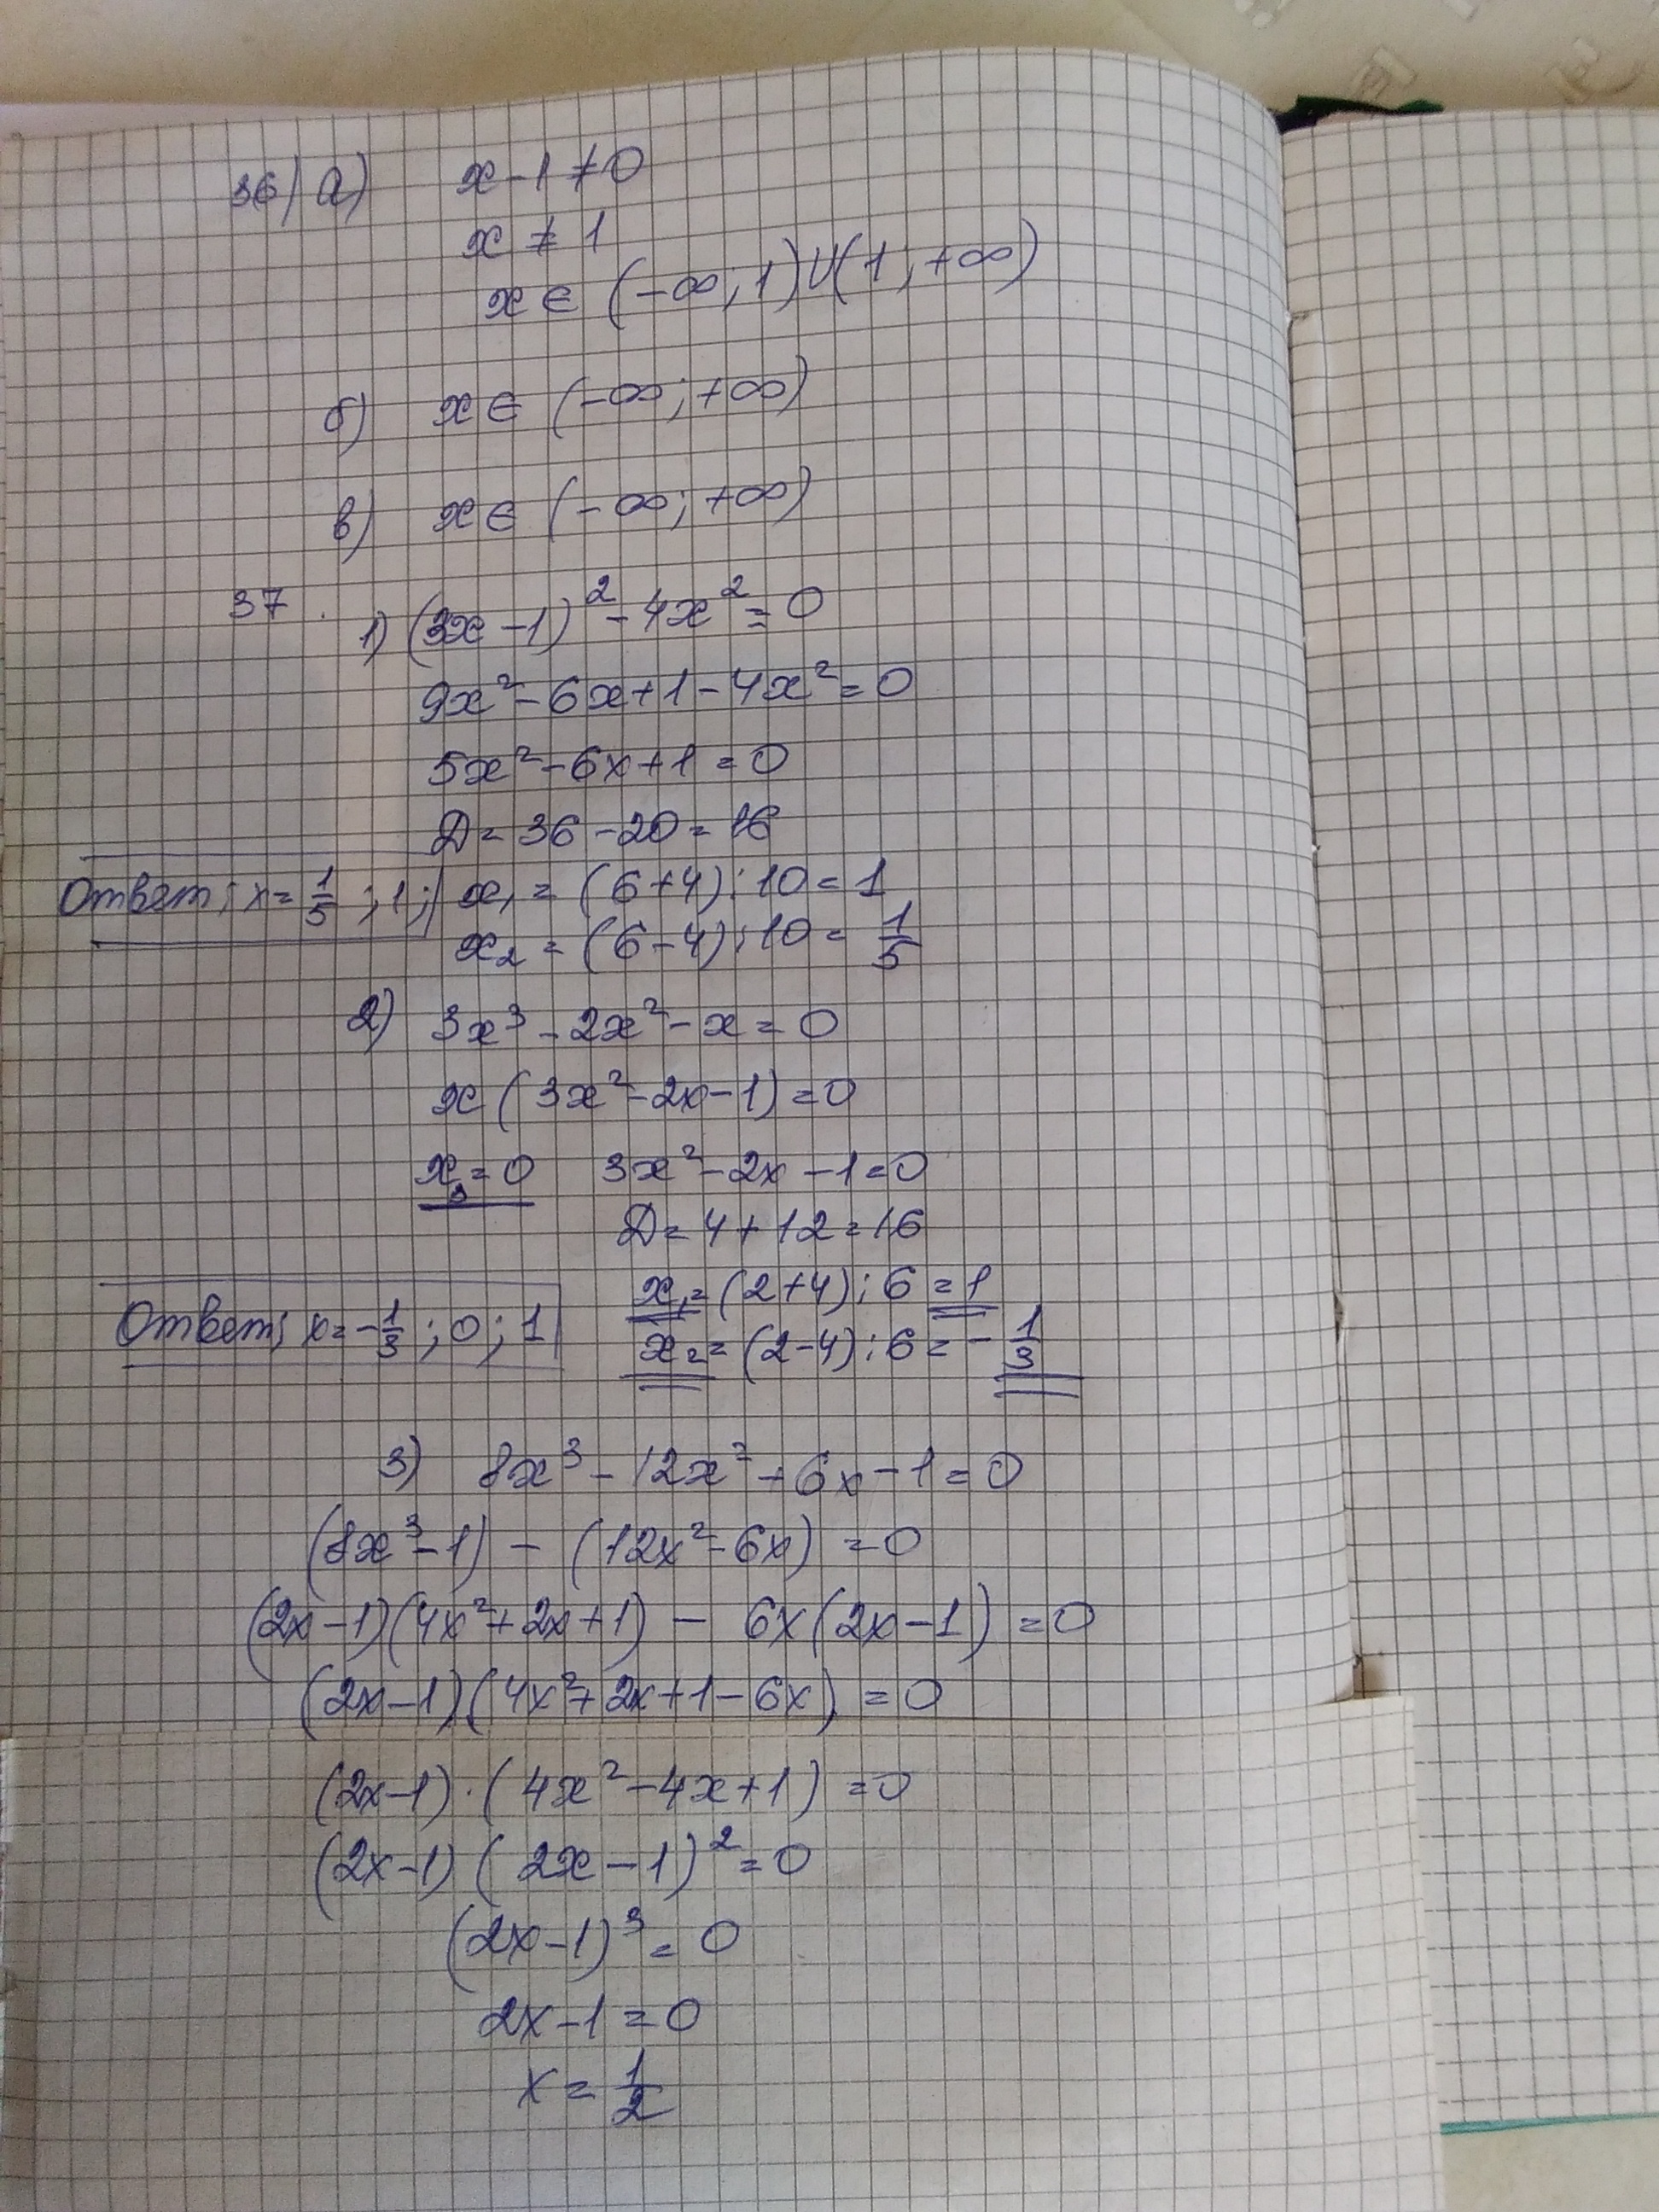 36) а) x - 1 ≠ 0
x ≠ 1
x ∈ (-∞; 1) ∪ (1; +∞)
б) x ∈ (-∞; +∞)
в) x ∈ (-∞; +∞)
37.
1) (3x - 1)² - 4x² = 0
9x² - 6x + 1 - 4x² = 0
5x² - 6x + 1 = 0
Д = 36 - 20 = 16
Ответ: x = 1/5; 1;
x₁ = (6+4) : 10 = 1
x₂ = (6-4) : 10 = 1/5
2) 3x³ - 2x² - x = 0
x (3x² - 2x - 1) = 0
x₃ = 0 3x² - 2x - 1 = 0
Д = 4 + 12 = 16
x₁ = (2+4) : 6 = 1
Ответ: x = -1/3; 0; 1
x₂ = (2-4) : 6 = -1/3
3) 8x³ - 12x² + 6x - 1 = 0
(8x³ - 1) - (12x² - 6x) = 0
(2x - 1)(4x² + 2x + 1) - 6x(2x - 1) = 0
(2x - 1)(4x² + 2x + 1 - 6x) = 0
(2x - 1) · (4x² - 4x + 1) = 0
(2x - 1) (2x - 1)² = 0
(2x - 1)³ = 0
2x - 1 = 0
x = 1/2